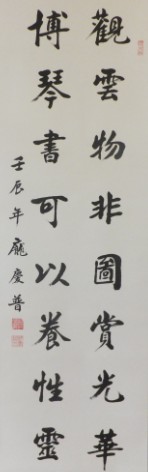 觀雲物非圖賞光華
博琴書可以養性靈
壬辰年龐慶普